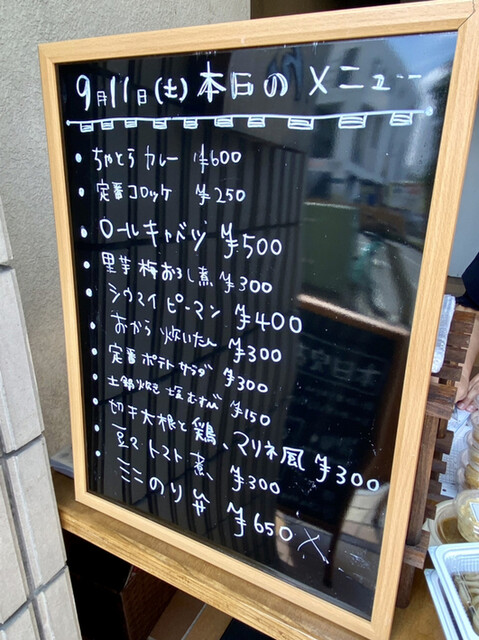 9月11日(土)本日のメニュー
・ちゃとらカレー ¥600
・定番コロッケ ¥250
・ロールキャベツ ¥500
・里芋梅おろし煮 ¥300
・シウマイピーマン ¥400
・おから炊いたん ¥300
・定番ポテトサラダ ¥300
・土鍋炊き塩むすび ¥150
・切干大根と鶏、マリネ風 ¥300
・豆マトマト煮 ¥300
・ミニのり弁 ¥650